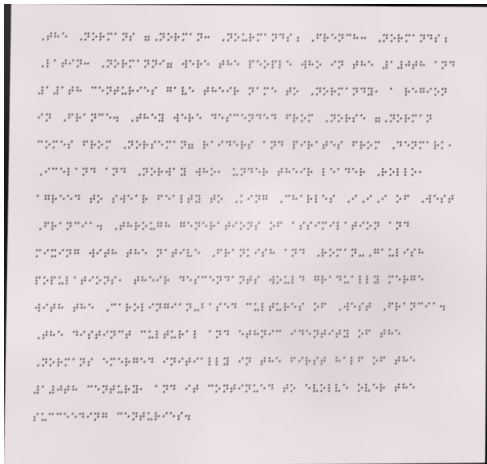 ⠠⠞⠓⠑ ⠠⠝⠕⠗⠍⠁⠝⠎ ⠶⠠⠝⠕⠗⠍⠁⠝⠒ ⠠⠝⠕⠥⠗⠍⠁⠝⠙⠎⠆ ⠠⠋⠗⠑⠝⠉⠓⠒ ⠠⠝⠕⠗⠍⠁⠝⠙⠎⠆
⠠⠇⠁⠞⠊⠝⠒ ⠠⠝⠕⠗⠍⠁⠝⠝⠊⠶ ⠺⠑⠗⠑ ⠞⠓⠑ ⠏⠑⠕⠏⠇⠑ ⠺⠓⠕ ⠊⠝ ⠞⠓⠑ ⠼⠁⠼⠚⠞⠓ ⠁⠝⠙
⠼⠁⠼⠁⠞⠓ ⠉⠑⠝⠞⠥⠗⠊⠑⠎ ⠛⠁⠧⠑ ⠞⠓⠑⠊⠗ ⠝⠁⠍⠑ ⠞⠕ ⠠⠝⠕⠗⠍⠁⠝⠙⠽⠂ ⠁ ⠗⠑⠛⠊⠕⠝
⠊⠝ ⠠⠋⠗⠁⠝⠉⠑⠲ ⠠⠞⠓⠑⠽ ⠺⠑⠗⠑ ⠙⠑⠎⠉⠑⠝⠙⠑⠙ ⠋⠗⠕⠍ ⠠⠝⠕⠗⠎⠑ ⠶⠠⠝⠕⠗⠍⠁⠝
⠉⠕⠍⠑⠎ ⠋⠗⠕⠍ ⠠⠝⠕⠗⠎⠑⠍⠁⠝⠶ ⠗⠁⠊⠙⠑⠗⠎ ⠁⠝⠙ ⠏⠊⠗⠁⠞⠑⠎ ⠋⠗⠕⠍ ⠠⠙⠑⠝⠍⠁⠗⠅⠂
⠠⠊⠉⠑⠇⠁⠝⠙ ⠁⠝⠙ ⠠⠝⠕⠗⠺⠁⠽ ⠺⠓⠕⠂ ⠥⠝⠙⠑⠗ ⠞⠓⠑⠊⠗ ⠇⠑⠁⠙⠑⠗ ⠠⠗⠕⠇⠇⠕⠂
⠁⠛⠗⠑⠑⠙ ⠞⠕ ⠎⠺⠑⠁⠗ ⠋⠑⠁⠇⠞⠽ ⠞⠕ ⠠⠅⠊⠝⠛ ⠠⠉⠓⠁⠗⠇⠑⠎ ⠠⠊⠠⠊⠠⠊ ⠕⠋ ⠠⠺⠑⠎⠞
⠠⠋⠗⠁⠝⠉⠊⠁⠲ ⠠⠞⠓⠗⠕⠥⠛⠓ ⠛⠑⠝⠑⠗⠁⠞⠊⠕⠝⠎ ⠕⠋ ⠁⠎⠎⠊⠍⠊⠇⠁⠞⠊⠕⠝ ⠁⠝⠙
⠍⠊⠭⠊⠝⠛ ⠺⠊⠞⠓ ⠞⠓⠑ ⠝⠁⠞⠊⠧⠑ ⠠⠋⠗⠁⠝⠅⠊⠎⠓ ⠁⠝⠙ ⠠⠗⠕⠍⠁⠝⠤⠠⠛⠁⠥⠇⠊⠎⠓
⠏⠕⠏⠥⠇⠁⠞⠊⠕⠝⠎⠂ ⠞⠓⠑⠊⠗ ⠙⠑⠎⠉⠑⠝⠙⠁⠝⠞⠎ ⠺⠕⠥⠇⠙ ⠛⠗⠁⠙⠥⠁⠇⠇⠽ ⠍⠑⠗⠛⠑
⠺⠊⠞⠓ ⠞⠓⠑ ⠠⠉⠁⠗⠕⠇⠊⠝⠛⠊⠁⠝⠤⠃⠁⠎⠑⠙ ⠉⠥⠇⠞⠥⠗⠑⠎ ⠕⠋ ⠠⠺⠑⠎⠞ ⠠⠋⠗⠁⠝⠉⠊⠁⠲
⠠⠞⠓⠑ ⠙⠊⠎⠞⠊⠝⠉⠞ ⠉⠥⠇⠞⠥⠗⠁⠇ ⠁⠝⠙ ⠑⠞⠓⠝⠊⠉ ⠊⠙⠑⠝⠞⠊⠞⠽ ⠕⠋ ⠞⠓⠑
⠠⠝⠕⠗⠍⠁⠝⠎ ⠑⠍⠑⠗⠛⠑⠙ ⠊⠝⠊⠞⠊⠁⠇⠇⠽ ⠊⠝ ⠞⠓⠑ ⠋⠊⠗⠎⠞ ⠓⠁⠇⠋ ⠕⠋ ⠞⠓⠑
⠼⠁⠼⠚⠞⠓ ⠉⠑⠝⠞⠥⠗⠽⠂ ⠁⠝⠙ ⠊⠞ ⠉⠕⠝⠞⠊⠝⠥⠑⠙ ⠞⠕ ⠑⠧⠕⠇⠧⠑ ⠕⠧⠑⠗ ⠞⠓⠑
⠎⠥⠉⠉⠑⠑⠙⠊⠝⠛ ⠉⠑⠝⠞⠥⠗⠊⠑⠎⠲